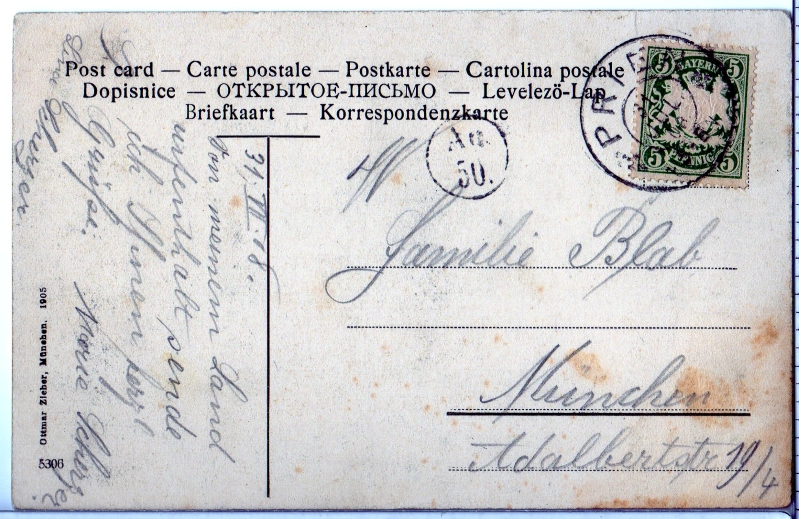 Post card — Carte postale — Postkarte — Cartolina postale
Dopisnice — ОТКРЫТОЕ-ПИСЬМО — Levelező-Lap
Briefkaart — Korrespondenzkarte
BAYERN
5 5
5 PFENNIG 5
PRIEN
Au.
50.
Familie Blab
München
Adalbertstr 19/4
31. VII 08.
Von meinem Land
aufenthalt sende
ich Ihnen herzl
Grüße.
Marie
Ottmar Zieher, München. 1905
5306